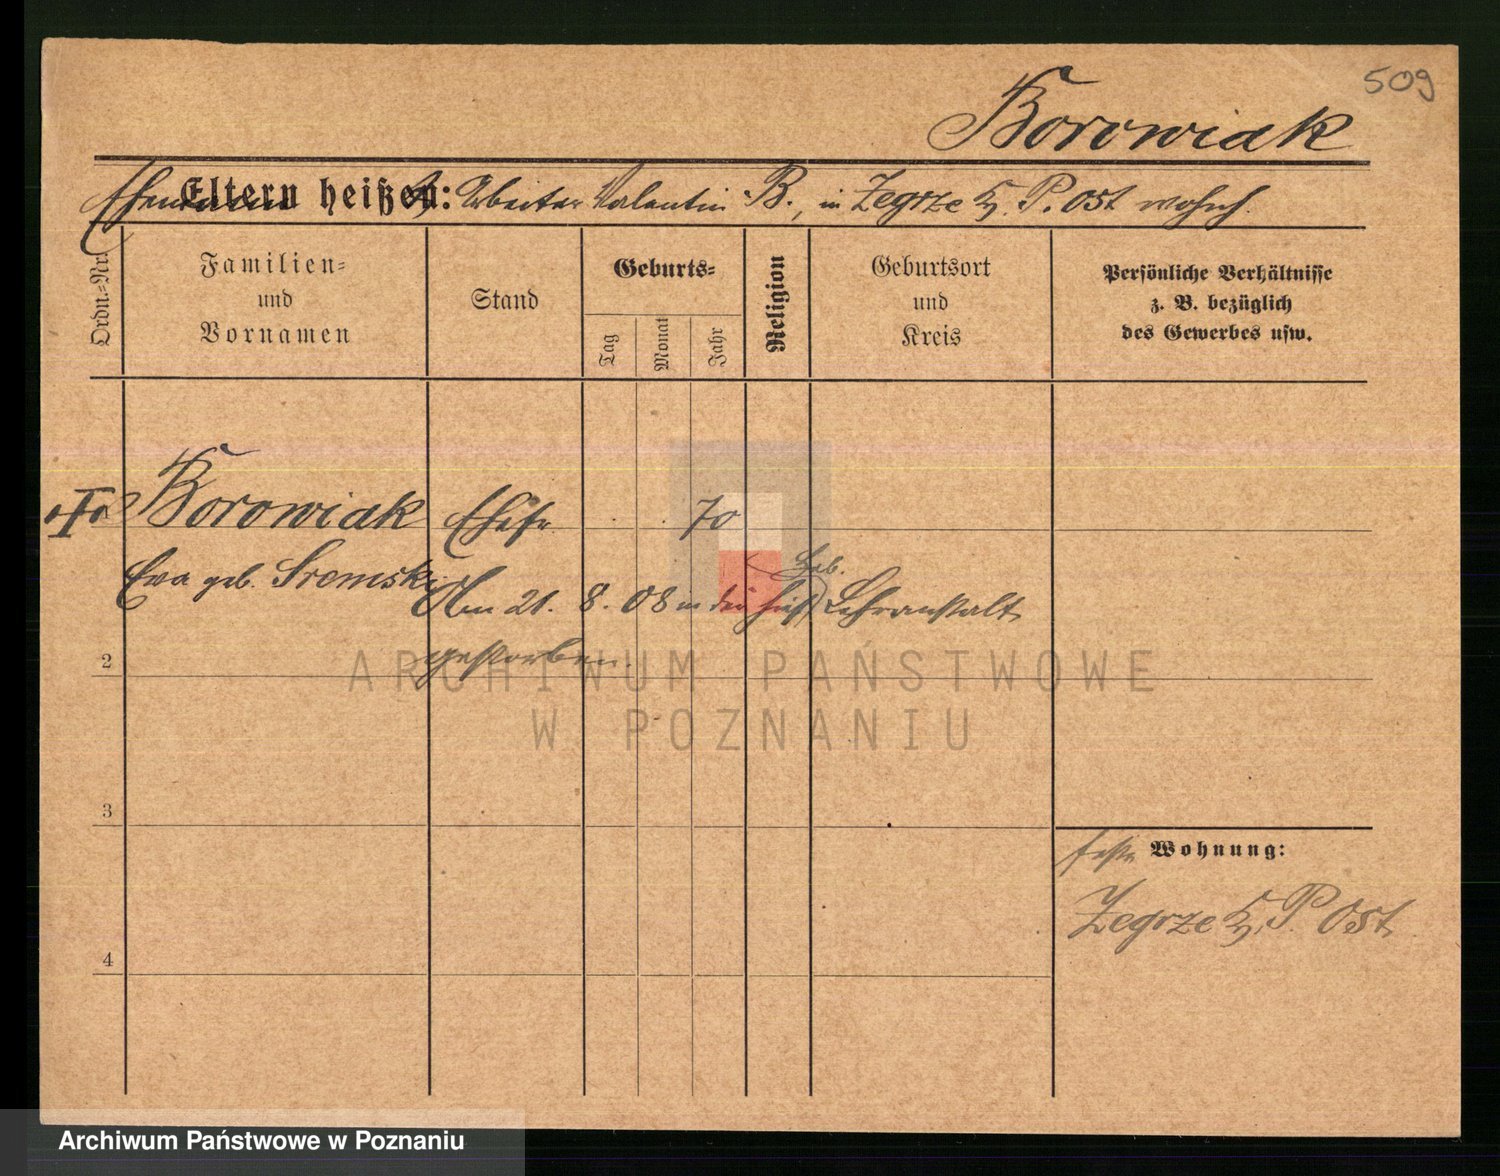 509
Borowiak
Eltern heißen:
Ehemann Arbeiter Valentin B., in Zegrze Kr. P. Ost wohnh.
Ordn.-Nr.
Familien-
und
Vornamen
Stand
Geburts-
Tag
Monat
Jahr
Religion
Geburtsort
und
Kreis
Persönliche Verhältnisse
z. B. bezüglich
des Gewerbes usw.
Borowiak Ehefr. 70
Eva geb. Sremski
Heb.
Am 21. 8. 08 in der hies. Lehranstalt
gestorben.
2
3
4
Wohnung:
Zegrze Kr. P. Ost
ARCHIWUM PAŃSTWOWE
W POZNANIU
Archiwum Państwowe w Poznaniu